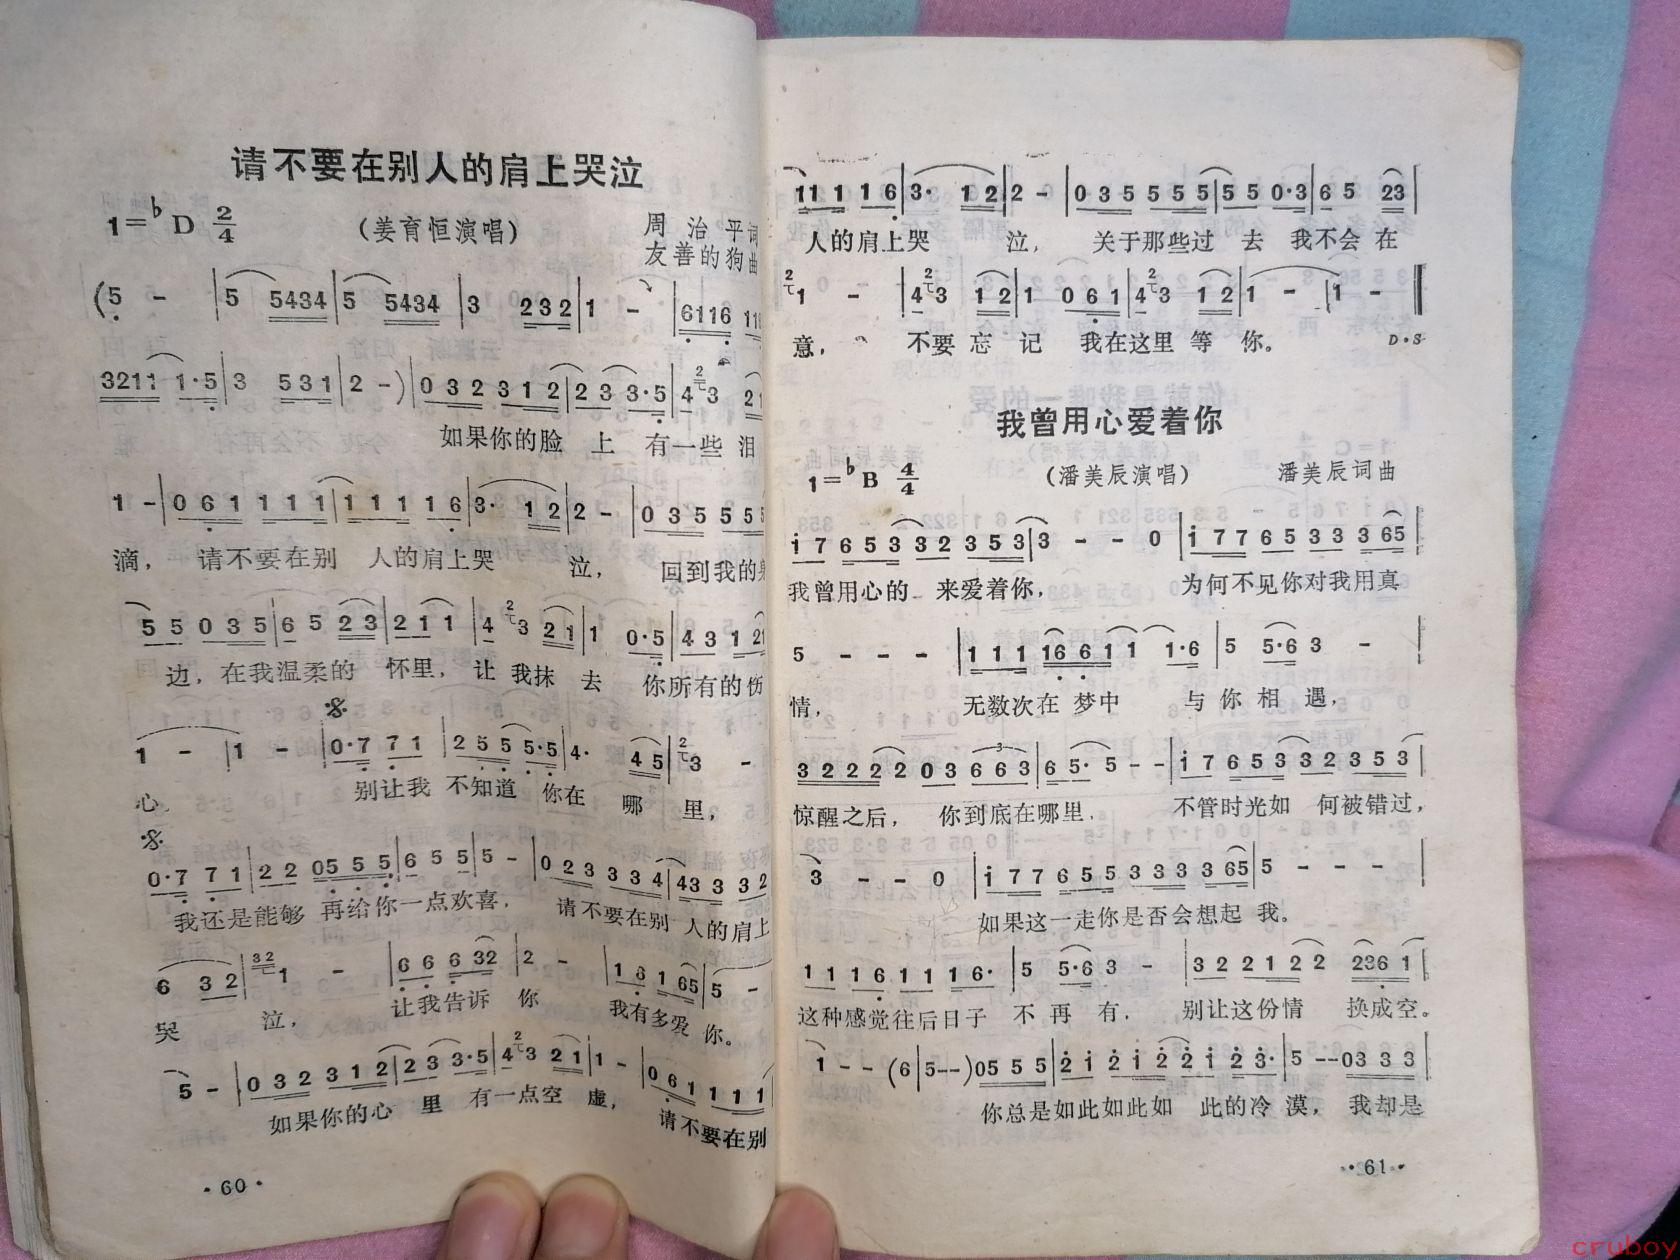 请不要在别人的肩上哭泣
1=♭D 2/4 （姜育恒演唱） 周治平词
友善的狗曲
(5 - | 5 5434 | 5 5434 | 3 232 | 1 - | 6116
3211 1·5 | 3 531 | 2 - ) | 032 312 | 23 3·5 | 4 3
如果你的脸 上 有一些 泪
1 - | 061 111 | 111 16 | 3· 12 | 2 - | 035 555
滴， 请不要在别 人的肩上哭 泣， 回到我的身
55 035 | 65 23 | 211 | 4 3 21 | 1 0·5 | 431
边，在我温柔的 怀里，让 我抹 去 你所有的伤
1 - | 1 - | 0·7 71 | 255 5·5 | 4· 45 | 3 -
心。 别让我 不知道 你在 哪 里，
0·7 71 | 22 0555 | 655 | 5 - | 023 334 | 433 32
我还是能够 再给你一点欢喜， 请不要在别 人的肩上
6 32 | 1 - | 666 32 | 2 - | 161 65 | 5 -
哭 泣， 让我告诉 你 我有多爱 你。
5 - | 032 312 | 23 3·5 | 4 3 21 | 1 - | 061 111
如果你的心 里 有一点空 虚， 请不要在别
·60·
111 16 | 3· 12 | 2 - | 035 555 | 55 0·3 | 65 23
人的肩上哭 泣， 关于那些过 去 我不会 在
1 - | 4 3 12 | 1 061 | 4 3 12 | 1 - | 1 -
意， 不要 忘 记 我在这里 等 你。 D·S
我曾用心爱着你
1=♭B 4/4 （潘美辰演唱） 潘美辰词曲
i7 653 32 353 | 3 - - 0 | i77 653 33 365
我曾用心的 来爱着你， 为何不见你对我用真
5 - - - | 111 16 61 1 1·6 | 5 5·6 3 -
情， 无数次在 梦中 与 你 相 遇，
3222 2 03 663 | 65· 5 - - | i7 653 32 353
惊醒之后， 你到底在哪里， 不管时光如 何被错过，
3 - - 0 | i77 655 333 365 | 5 - - -
如果这一走你是否会想起 我。
111 6 111 6· | 5 5·6 3 - | 322 122 236 1
这种感觉往后日子 不 再 有， 别让这份情 换成空。
1 - - (6 | 5 - -) 0555 | 2i 2i 2i 23· | 5 - - 0333
你总是如此如此如 此的冷 漠， 我却是
·61·
cruboy